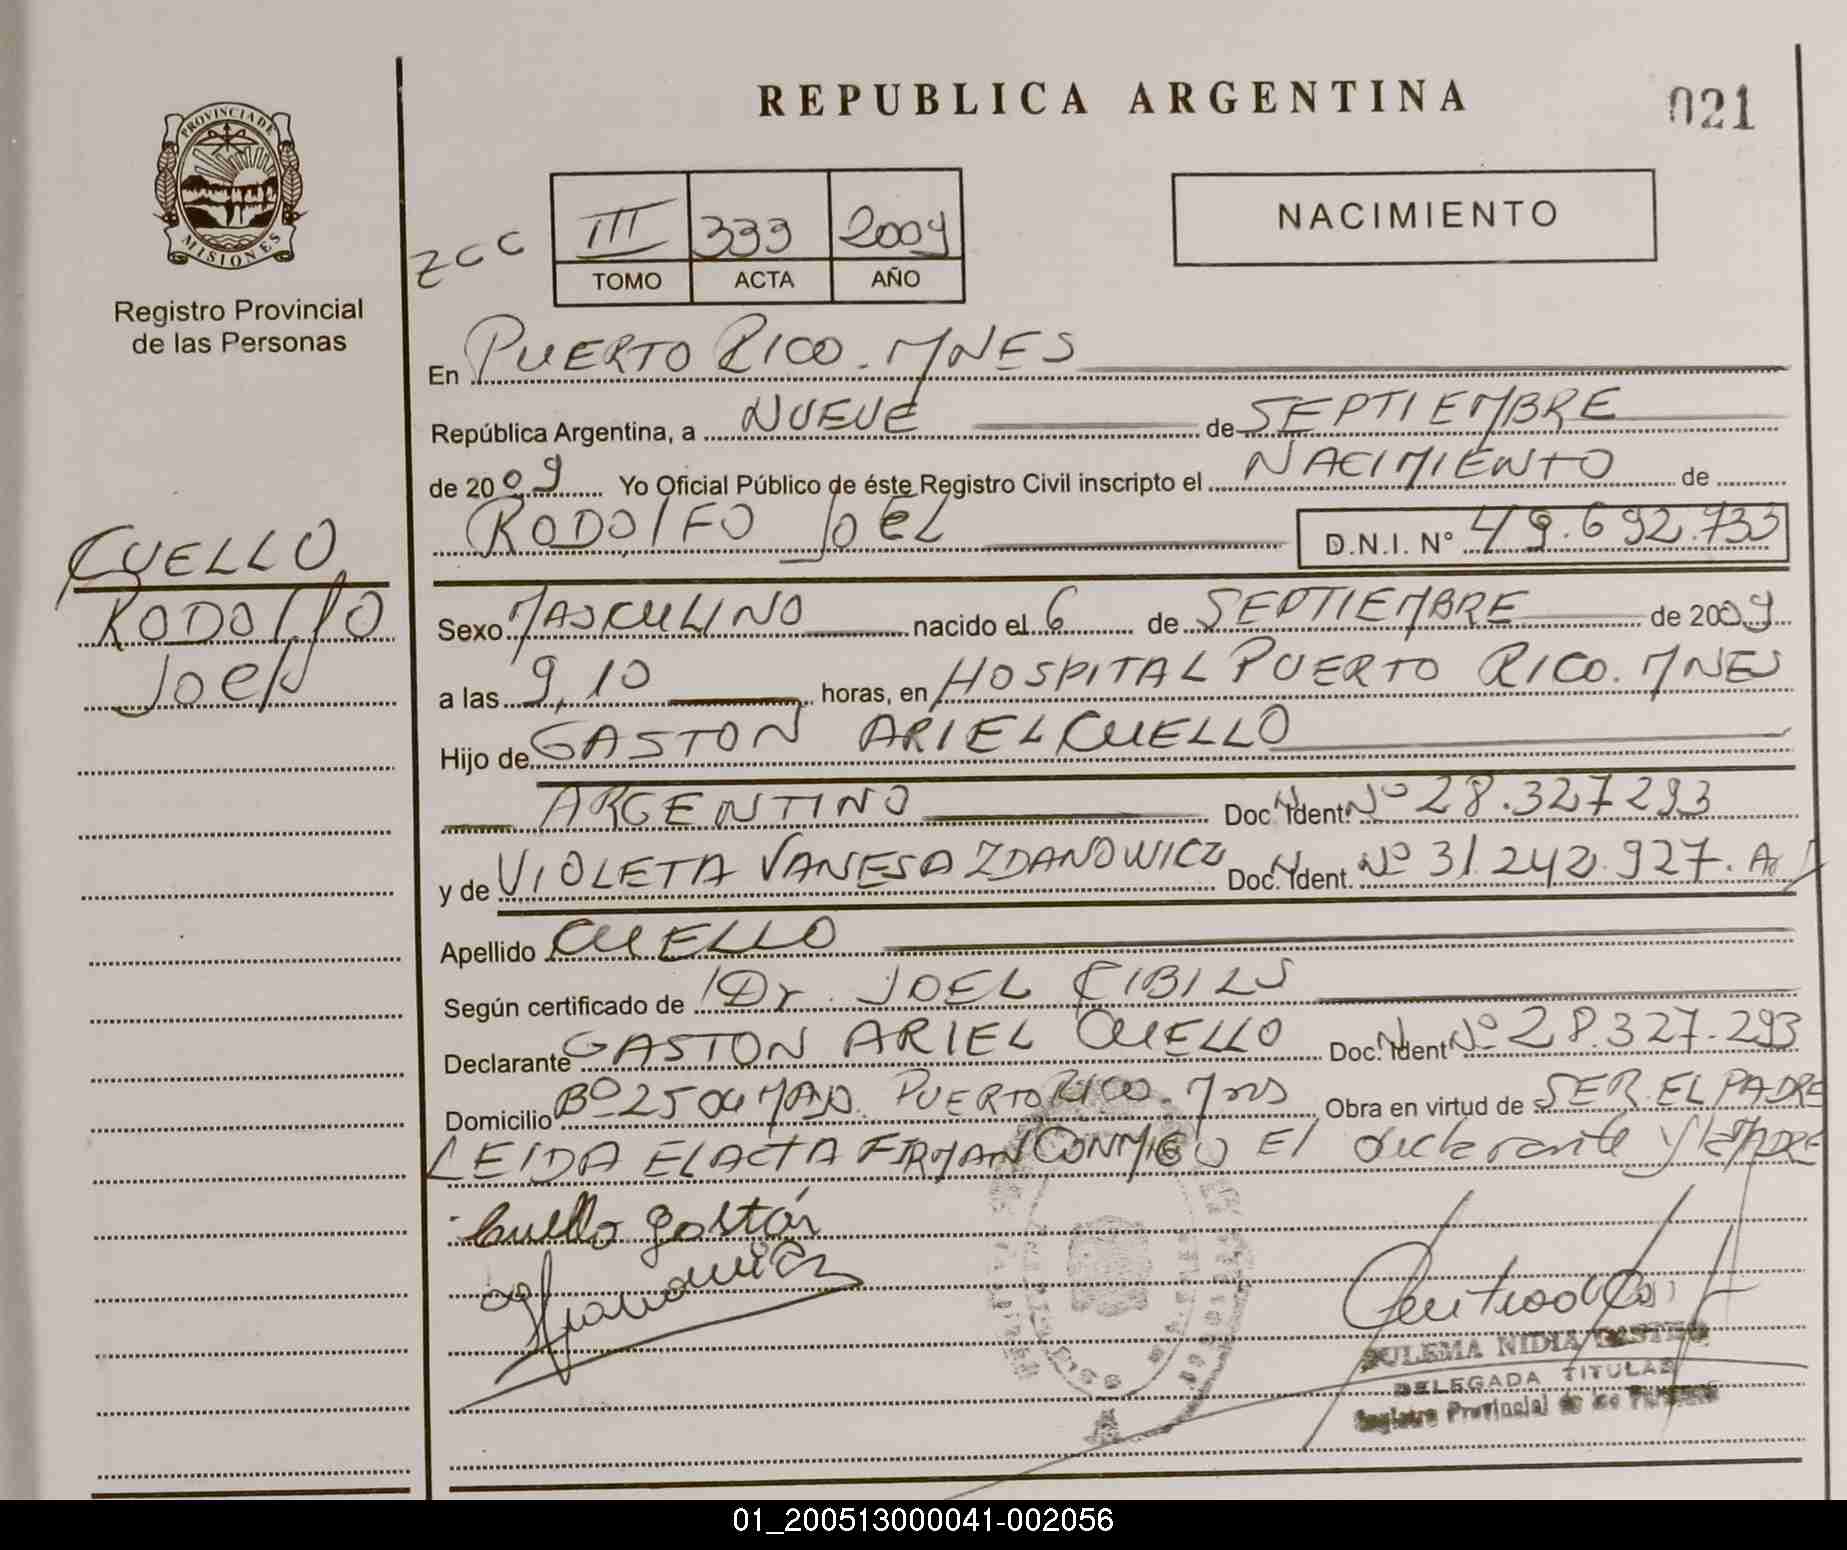 REPUBLICA ARGENTINA
021
PROVINCIA DE
MISIONES
Registro Provincial
de las Personas
ZCC
III 333 2009
TOMO ACTA AÑO
NACIMIENTO
En PUERTO RICO. MNES
República Argentina, a NUEVE de SEPTIEMBRE
de 2009 Yo Oficial Público de éste Registro Civil inscripto el NACIMIENTO de
RODOLFO JOEL D.N.I. Nº 49.692.733
CUELLO
RODOLFO
JOEL
Sexo MASCULINO nacido el 6 de SEPTIEMBRE de 2009
a las 9,10 horas, en HOSPITAL PUERTO RICO. MNES
Hijo de GASTON ARIEL CUELLO
ARGENTINO Doc. Ident. Nº 28.327293
y de VIOLETA VANESA ZDANOWICZ Doc. Ident. Nº 31.242.927.
Apellido CUELLO
Según certificado de Dr. JOEL CIBILS
Declarante GASTON ARIEL CUELLO Doc. Ident Nº 28.327.293
Domicilio Bº 25 de MAYO. PUERTO RICO. Mnes Obra en virtud de SER EL PADRE
LEIDA EL ACTA FIRMAN CONMIGO El declarante y la MADRE
Cuello Gastón
ZULEMA NIDIA
DELEGADA TITULAR
Registro Provincial de las Personas
01_200513000041-002056